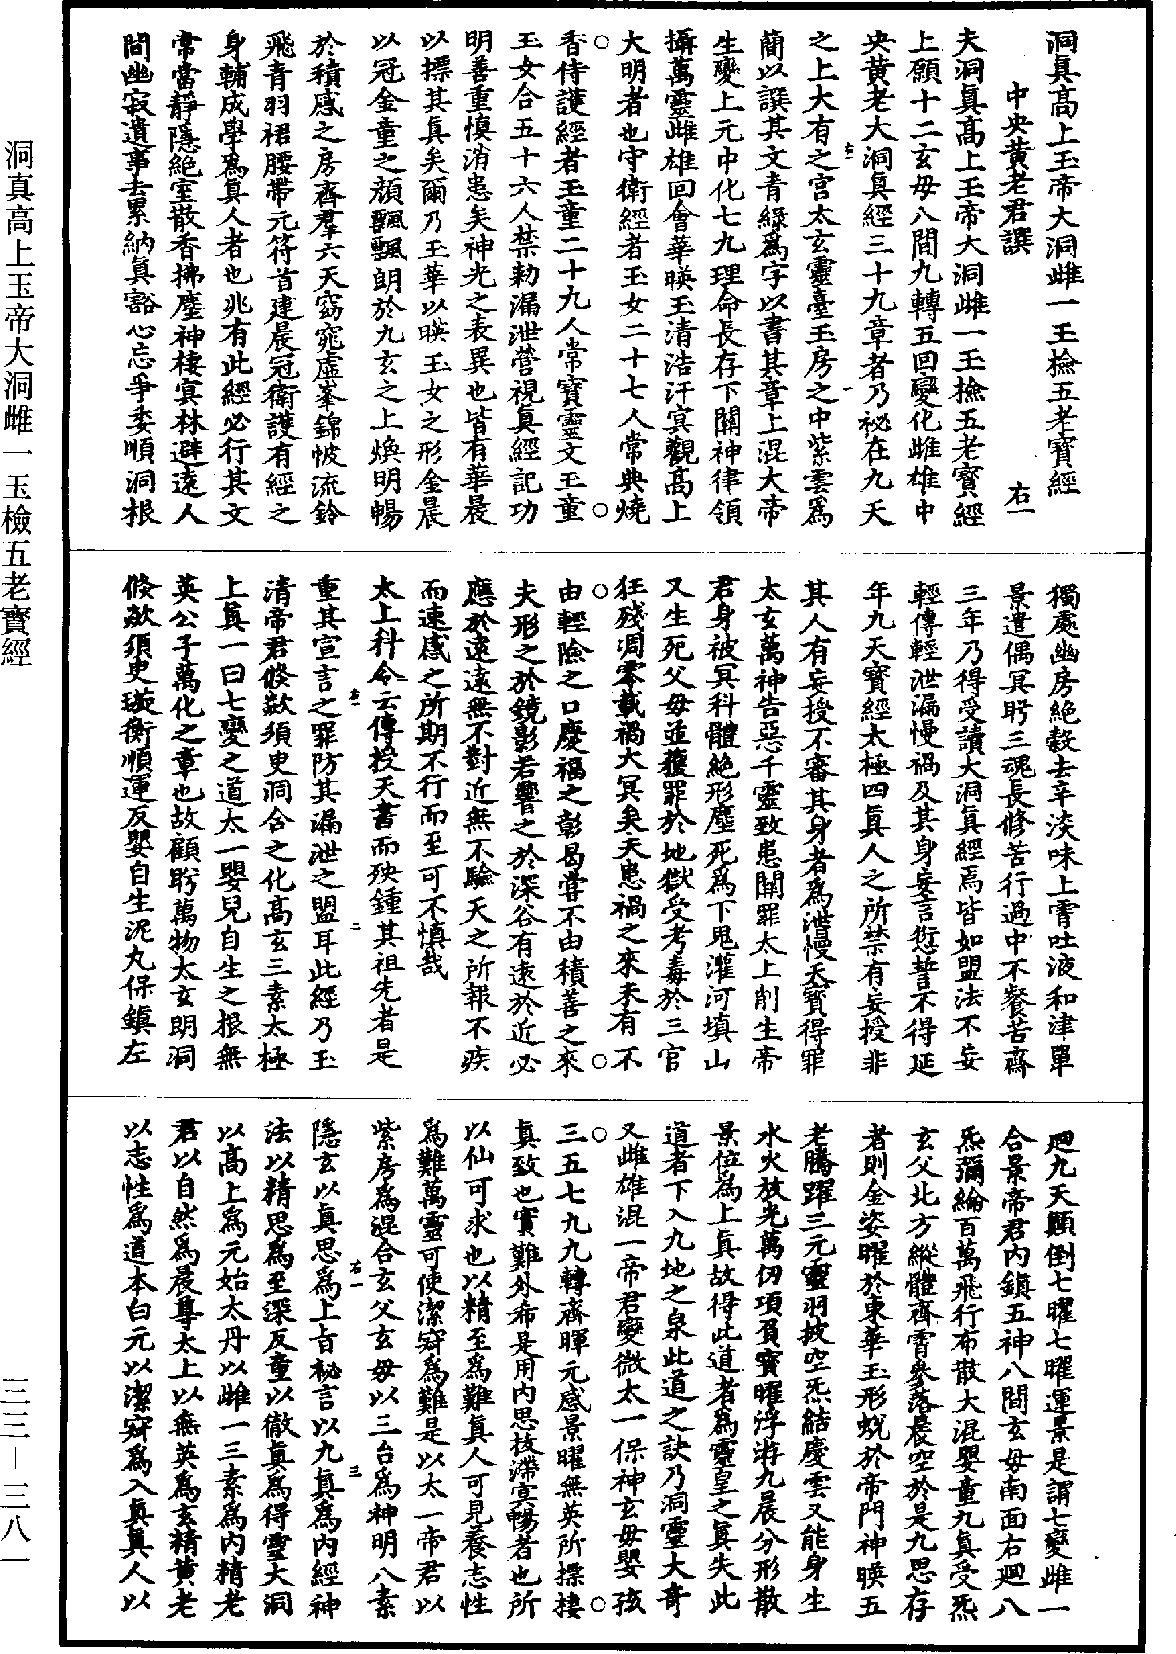 洞真高上玉帝大洞雌一玉檢五老寶經
中央黃老君譔
右一
夫洞真高上玉帝大洞雌一玉檢五老寶經
上願十二玄母八間九轉五回變化雌雄中
央黃老大洞真經三十九章者乃祕在九天
之上大有之宮太玄靈臺玉房之中紫雲為
簡以譔其文青綠為字以書其章上混大帝
生變上元中化七九理命長存下關神律領
攝萬靈雌雄回會華暎玉清浩汗冥觀高上
大明者也守衛經者玉女二十七人常典燒
香侍護經者玉童二十九人常寶靈文玉童
玉女合五十六人禁勑漏泄營視真經記功
明善重慎消患矣神光之表異也皆有華晨
以摽其真矣爾乃玉華以暎玉女之形金晨
以冠金童之顏飄飄朗於九玄之上煥明暢
於積感之房齊羣六天窈窕虛峯錦帔流鈴
飛青羽裙腰帶元符首建晨冠衛護有經之
身輔成學為真人者也兆有此經必行其文
常當靜隱絕室散香拂塵神棲冥林避遠人
間幽寂遺事去累納真豁心忘爭委順洞根
獨處幽房絕穀去辛淡味上霄吐液和津單
景遣偶冥眄三魂長修苦行過中不餐苦齋
三年乃得受讀大洞真經焉皆如盟法不妄
輕傳輕泄漏慢禍及其身妄言愆誓不得延
年九天寶經太極四真人之所禁有妄授非
其人有妄授不審其身者為泄慢天寶得罪
太玄萬神告惡千靈致患關罪太上削生帝
君身被冥科體絕形塵死為下鬼灌河填山
又生死父母並獲罪於地獄受考毒於三官
狂殘凋零載禍大冥矣夫患禍之來未有不
由輕險之口慶福之彰曷嘗不由積善之來
夫形之於鏡影若響之於深谷有遠於近必
應於遠遠無不對近無不驗天之所報不疾
而速感之所期不行而至可不慎哉
太上科令云傳授天書而殃鍾其祖先者是
重其宣言之罪防其漏泄之盟耳此經乃玉
清帝君倏歘須臾洞合之化高玄三素太極
上真一曰七變之道太一嬰兒自生之根無
英公子萬化之章也故顧眄萬物太玄明洞
倏歘須臾璇衡順運反嬰自生泥丸保鎮左
迴九天顛倒七曜七曜運景是謂七變雌一
合景帝君內鎮五神八間玄母南面右迴八
炁彌綸百萬飛行布散大混嬰童九真受炁
玄父北方縱體齊霄參落晨空於是九思存
者則金姿曜於東華玉形蛻於帝門神暎五
老騰躍三元靈羽披空炁結慶雲又能身生
水火放光萬仞項負寶曜浮游九晨分形散
景位為上真故得此道者為靈皇之真失此
道者下入九地之泉此道之訣乃洞靈大奇
又雌雄混一帝君變微太一保神玄母嬰孩
三五七九九轉齊暉元感景曜無英所摽棲
真致也實難外希是用內思技滯冥暢者也所
以仙可求也以精至為難真人可見養志性
為難萬靈可使潔穽為難是以太一帝君以
紫房為混合玄父玄母以三台為神明八素
隱玄以真思為上首祕言以九真為內經神
法以精思為至深反童以徹真為得靈大洞
以高上為元始太丹以雌一三素為內精老
君以自然為晨尊太上以無英為玄精黃老
以志性為道本白元以潔穽為入真真人以
洞真高上玉帝大洞雌一玉檢五老寶經
三三—三八一